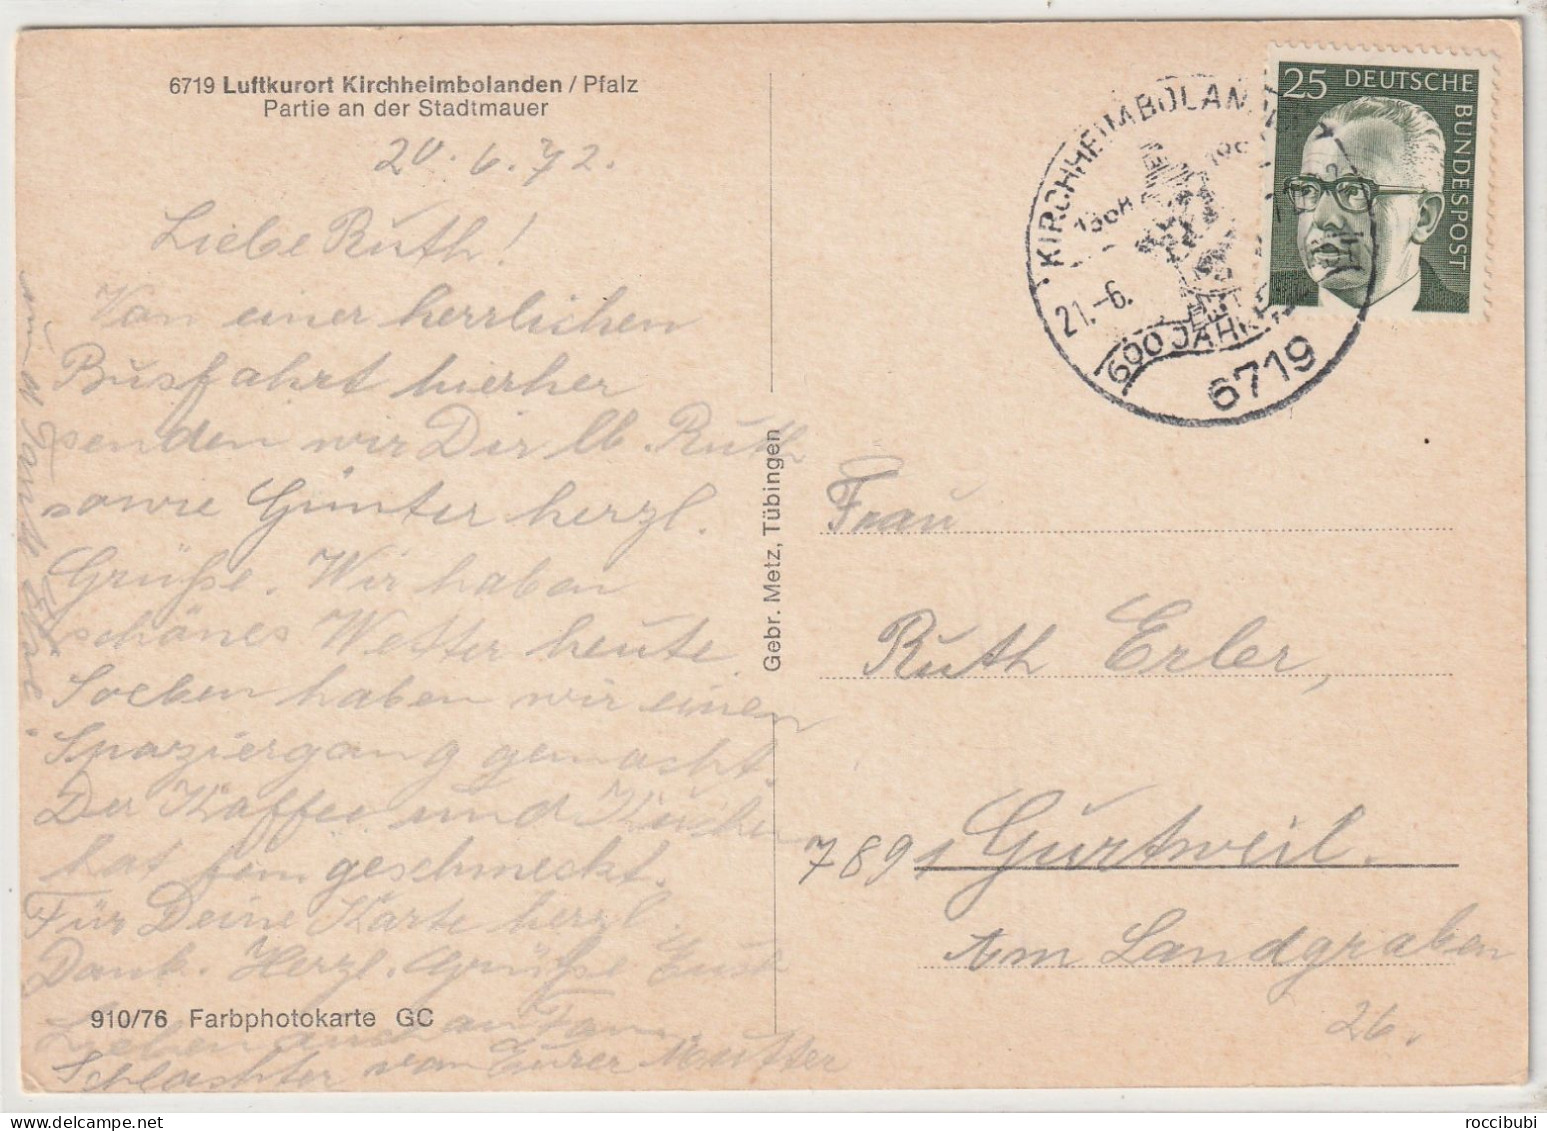 6719 Luftkurort Kirchheimbolanden / Pfalz
Partie an der Stadtmauer
20.6.72.
Liebe Ruth!
Von einer herrlichen
Busfahrt hierher
senden wir Dir lb. Ruth
sowie Günter herzl.
Grüße. Wir haben
schönes Wetter heute.
Soeben haben wir einen
Spaziergang gemacht.
Der Kaffee und Kuchen
hat geschmeckt.
Für Deine Karte herzl.
Dank. Herzl. Grüße Euch
Lieben auch an Fam.
Schlachter von Eurer Mutter
910/76 Farbphotokarte GC
Gebr. Metz, Tübingen
KIRCHHEIMBOLANDEN
1368
21.-6.
600 JAHRE
6719
25 DEUTSCHE BUNDESPOST
Frau
Ruth Erler,
7891 Gurtweil.
Am Landgraben
26.
roccibubi